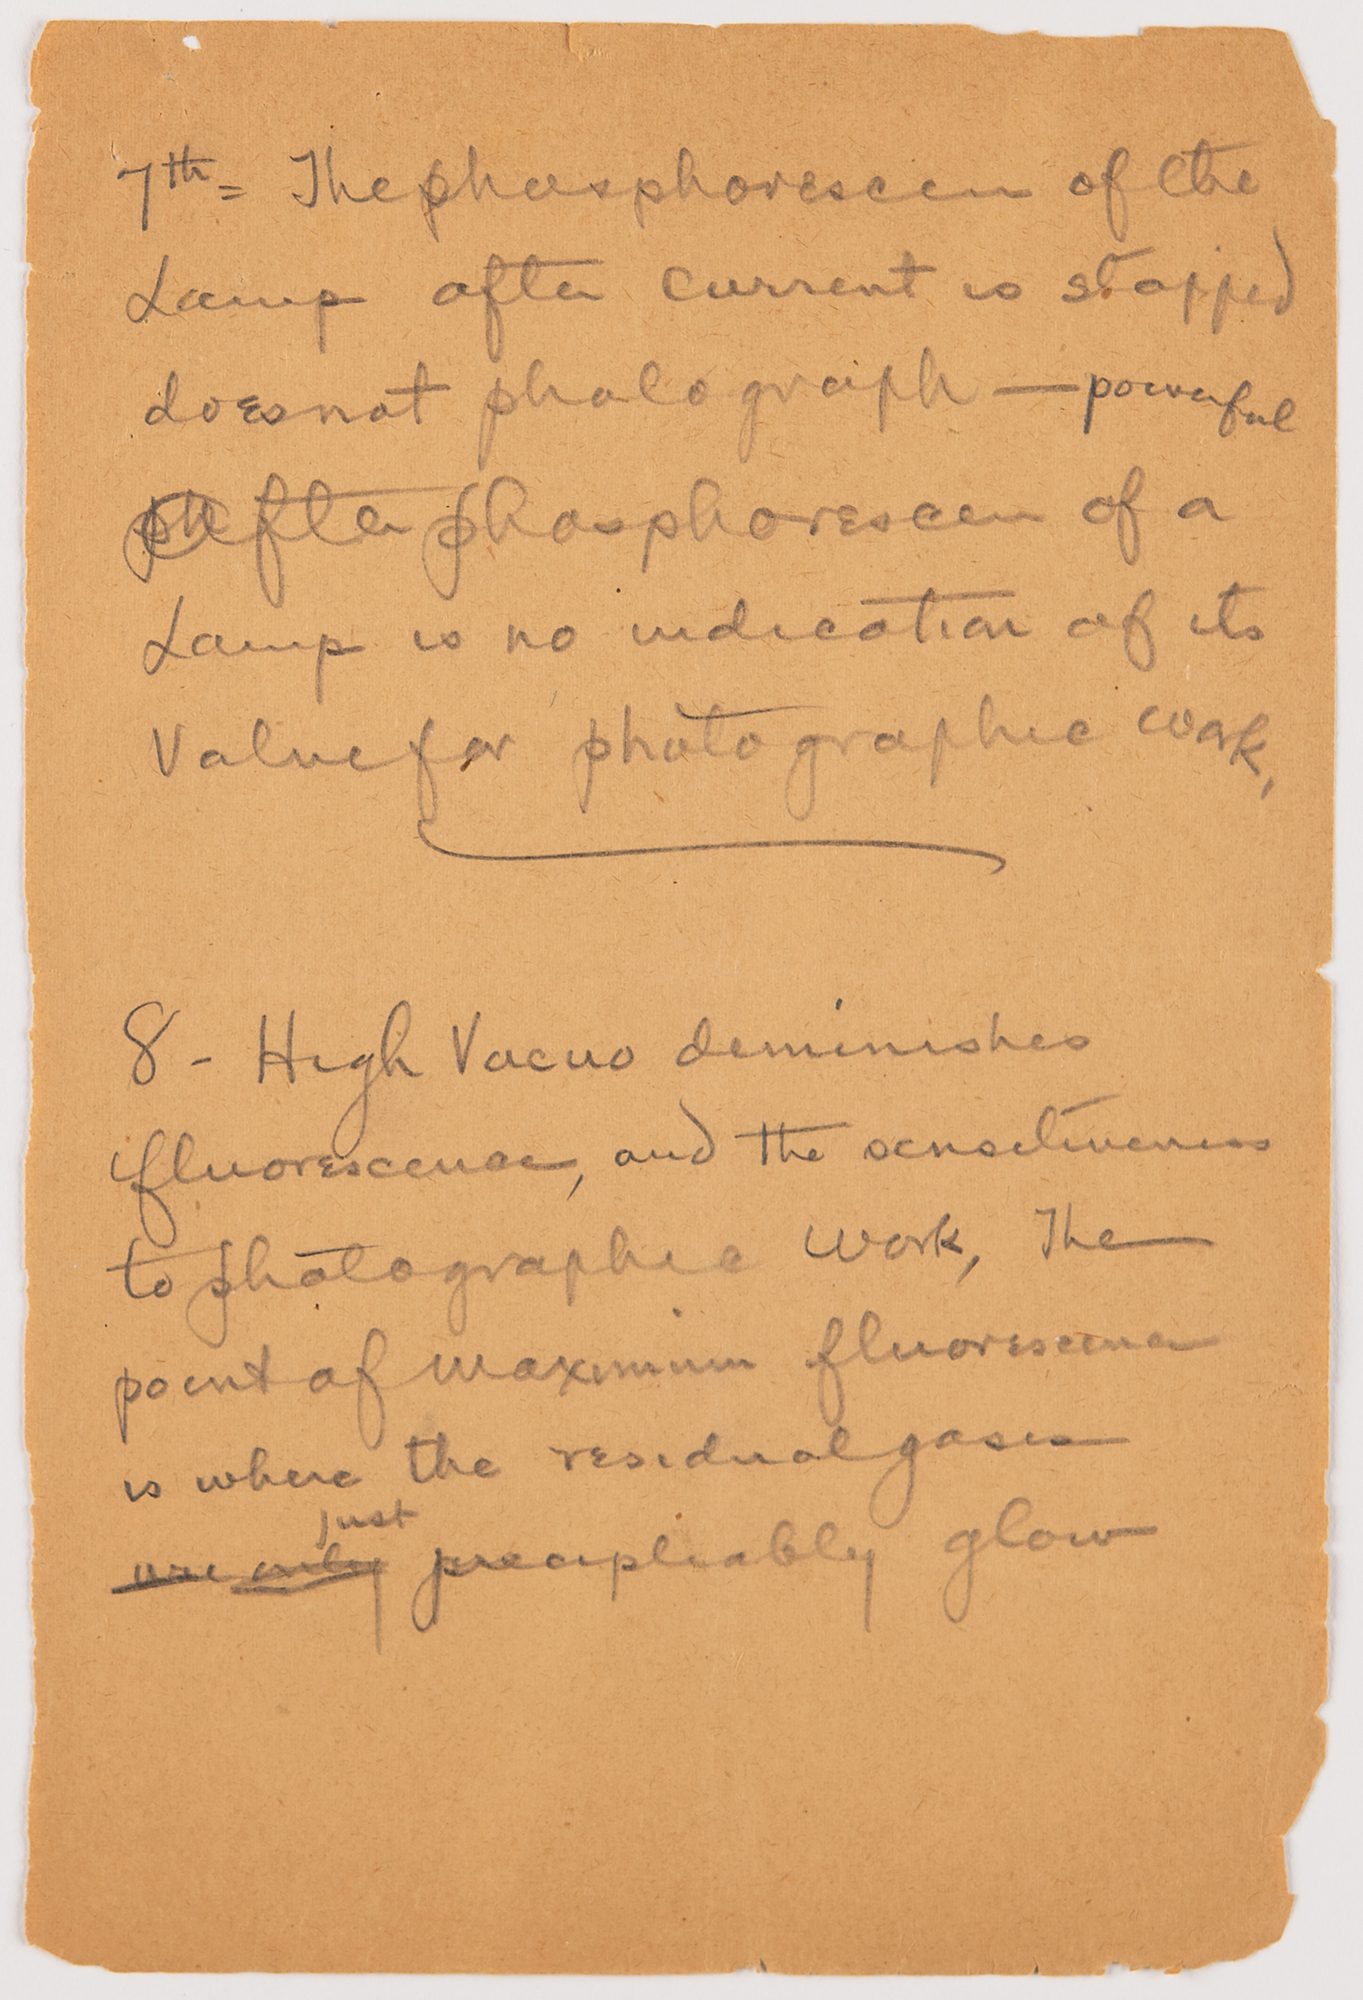 7th = The phosphorescen of the
Lamp after current is stopped
does not photograph — powerful
After phosphorescen of a
Lamp is no indication of its
Value for photographic work,
8 - High Vacuo deminishes
fluorescence, and the sensitiveness
to photographic work, The
point of maximum fluorescence
is where the residual gases
just
are only precipliably glow